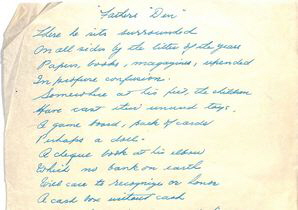 "Fathers "Den"
There he sits surrounded
On all sides by the litter of the years
Papers, books, magazines, upended
In propure confusion.
Somewhere at his feet, the children
Have cast their unused toys.
A game board, pack of cards
Perhaps a doll.
A cheque book at his elbow
Which no bank on earth
Would care to recognize or honor
A cash box without cash